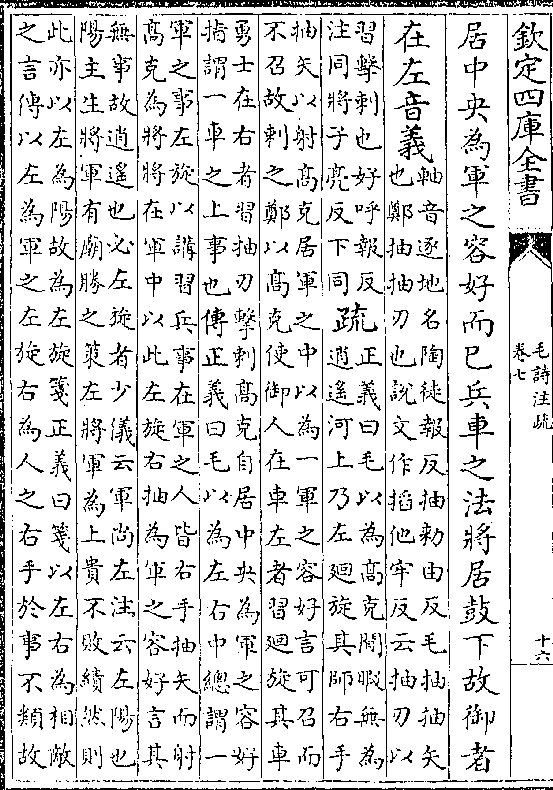 欽定四庫全書
毛詩注疏
卷七
十六
居中央為軍之容好而已兵車之法將居鼓下故御者
在左音義
軸音逐地名陶徒報反抽勑由反毛抽抽矢
也鄭抽抽刃也說文作搯他牢反云抽刃以
習擊刺也好呼報反
注同將子亮反下同
疏
正義曰毛以為髙克閒暇無為
逍遥河上乃左廻旋其師右手
抽矢以射髙克居軍之中以為一軍之容好言可召而
不召故刺之鄭以髙克使御人在車左者習廻旋其車
勇士在右者習抽刃擊刺髙克自居中央為軍之容好
指謂一車之上事也傳正義曰毛以為左右中總謂一
軍之事左旋以講習兵事在軍之人皆右手抽矢而射
髙克為將將在軍中以此左旋右抽為軍之容好言其
無事故逍遥也必左旋者少儀云軍尚左注云左陽也
陽主生將軍有廟勝之策左將軍為上貴不敗績然則
此亦以左為陽故為左旋箋正義曰箋以左右為相敵
之言傳以左為軍之左旋右為人之右手於事不類故